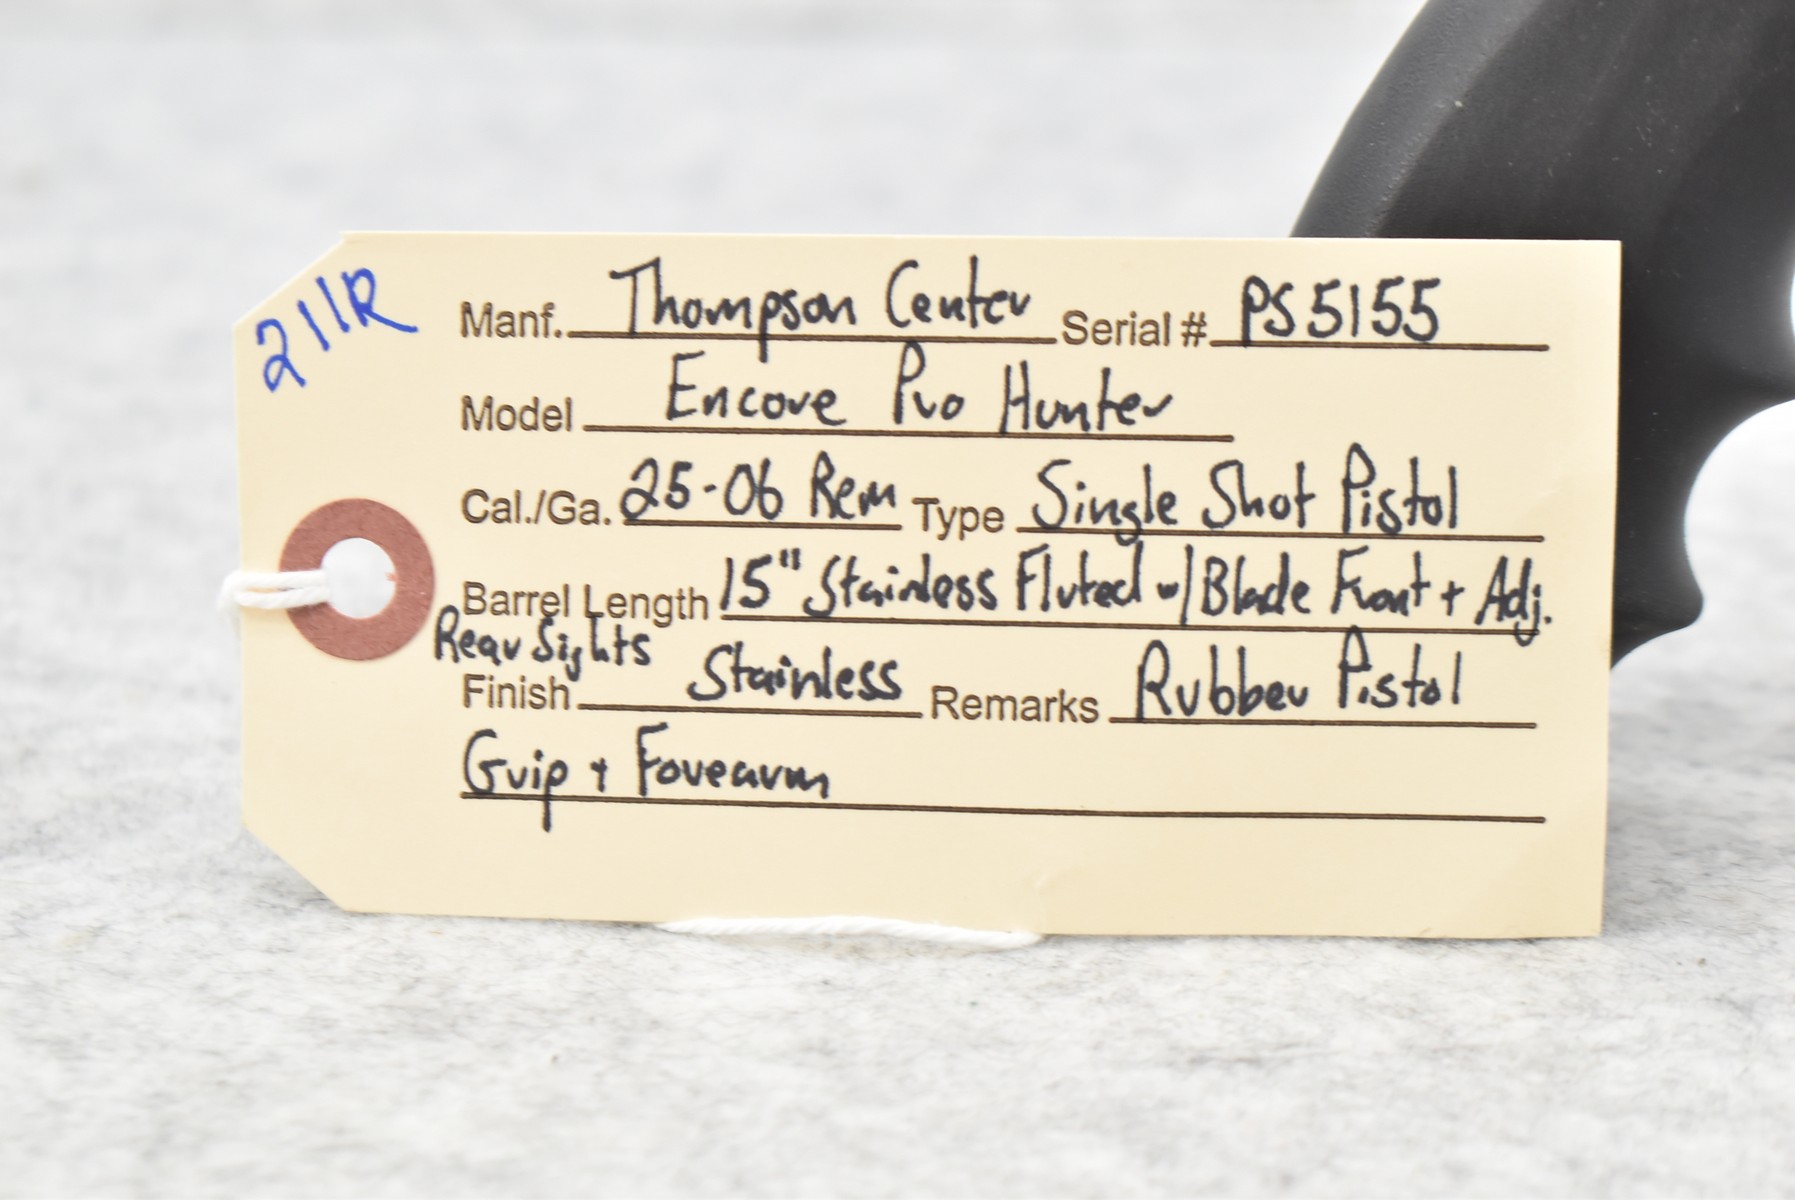 211R
Manf. Thompson Center Serial # PS5155
Model Encore Pro Hunter
Cal./Ga. 25-06 Rem Type Single Shot Pistol
Barrel Length 15" Stainless Fluted w/ Blade Front + Adj.
Rear Sights
Finish Stainless Remarks Rubber Pistol
Grip + Forearm